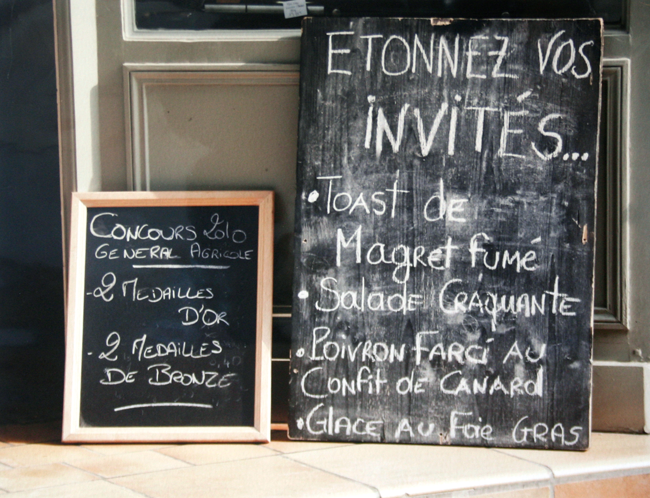 CONCOURS 2010
GENERAL AGRICOLE
- 2 MEDAILLES
D'OR
- 2 MEDAILLES
DE BRONZE
ETONNEZ VOS
INVITÉS...
• TOAST de
Magret fumé
• Salade CRAQUANTE
• POIVRON FARCi AU
CONFiT de CANARd
• GLACE AU Foie GRAS